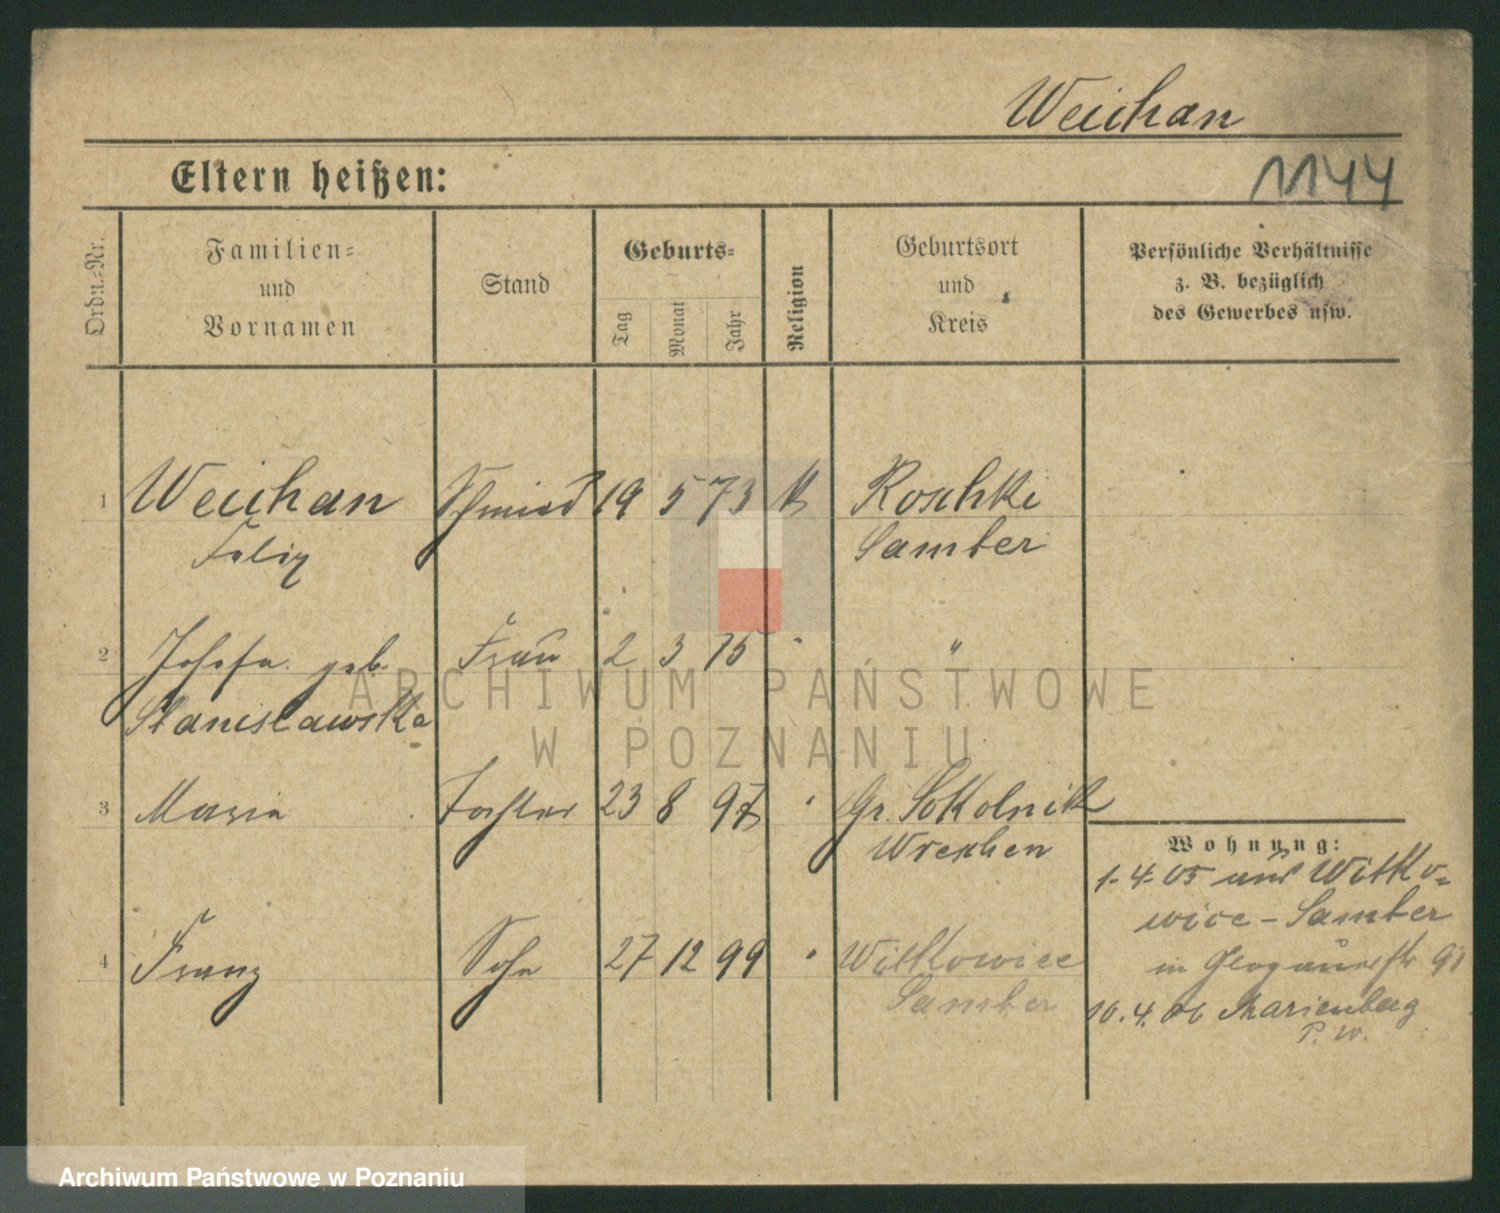 Weichan
Eltern heißen:
1144
Ordn.=Nr.
Familien=
und
Vornamen
Stand
Geburts=
Tag
Monat
Jahr
Religion
Geburtsort
und
Kreis
Persönliche Verhältnisse
z. B. bezüglich
des Gewerbes usw.
1 Weichan Schmied 19 5 73 k Roschki
Felix Samter
2 Josefa geb. Frau 2 3 75 " "
Stanisławska
3 Maria Tochter 23 8 97 " Gr. Sokolnik
Wreschen
4 Franz Sohn 27 12 99 " Witkowice
Samter
Wohnung:
1.4.05 aus Witko=
wice - Samter
in Glogauerstr 91
10.4.06 Marienberg
P. W.
ARCHIWUM PAŃSTWOWE
W POZNANIU
Archiwum Państwowe w Poznaniu